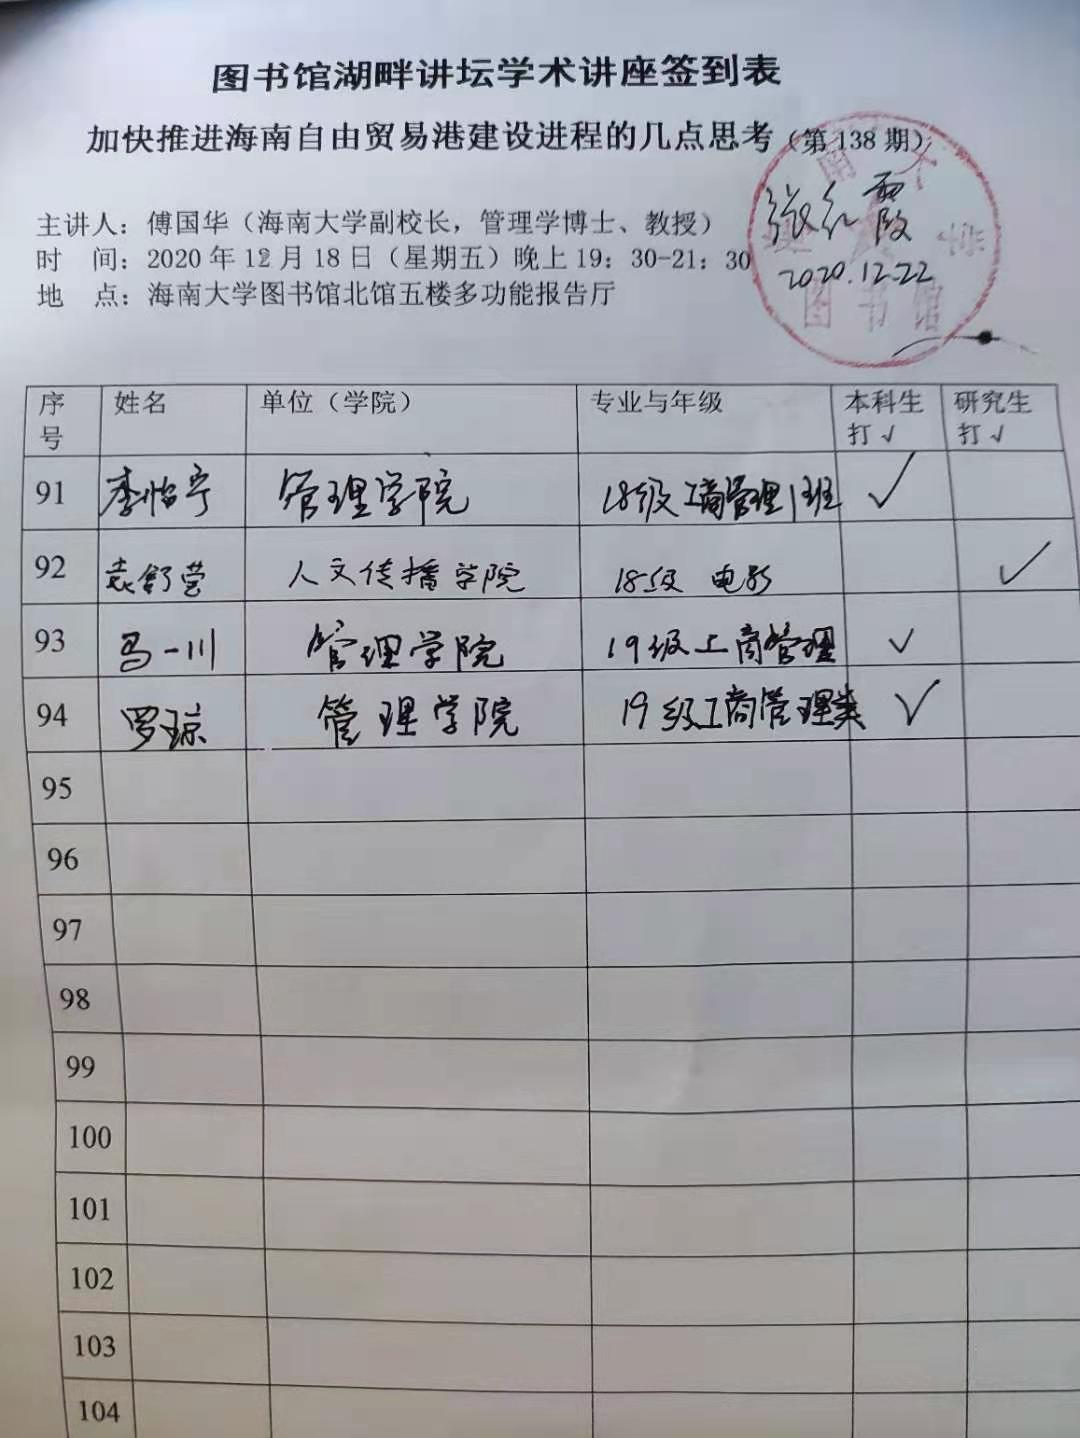 图书馆湖畔讲坛学术讲座签到表
加快推进海南自由贸易港建设进程的几点思考（第138期）
主讲人：傅国华（海南大学副校长，管理学博士、教授）
时 间：2020年12月18日（星期五）晚上19：30-21：30
地 点：海南大学图书馆北馆五楼多功能报告厅
张红霞
2020.12.22
南大
图书馆
序号 姓名 单位（学院） 专业与年级 本科生打√ 研究生打√
91 李怡宁 管理学院 18级工商管理1班 √
92 袁舒莹 人文传播学院 18级 电影 √
93 马一川 管理学院 19级工商管理 √
94 罗琼 管理学院 19级工商管理类 √
95
96
97
98
99
100
101
102
103
104